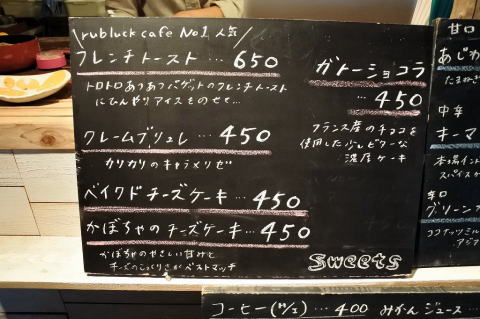 \rubluck cafe No1 人気/
フレンチトースト … 650
トロトロあつあつバゲットのフレンチトースト
にひんやりアイスをのせて…
クレームブリュレ … 450
カリカリのキャラメリゼ
ベイクドチーズケーキ … 450
かぼちゃのチーズケーキ … 450
かぼちゃのやさしい甘みと
チーズのこっくりさがベストマッチ
ガトーショコラ
… 450
フランス産のチョコを
使用した少しビターな
濃厚ケーキ
Sweets
甘口
あじか
たまねぎ
中辛
オーマ
本場イント
スパイスか
辛口
グリーン
ココナッツミル
アジア
コーヒー (H/I) … 400 みかんジュース …